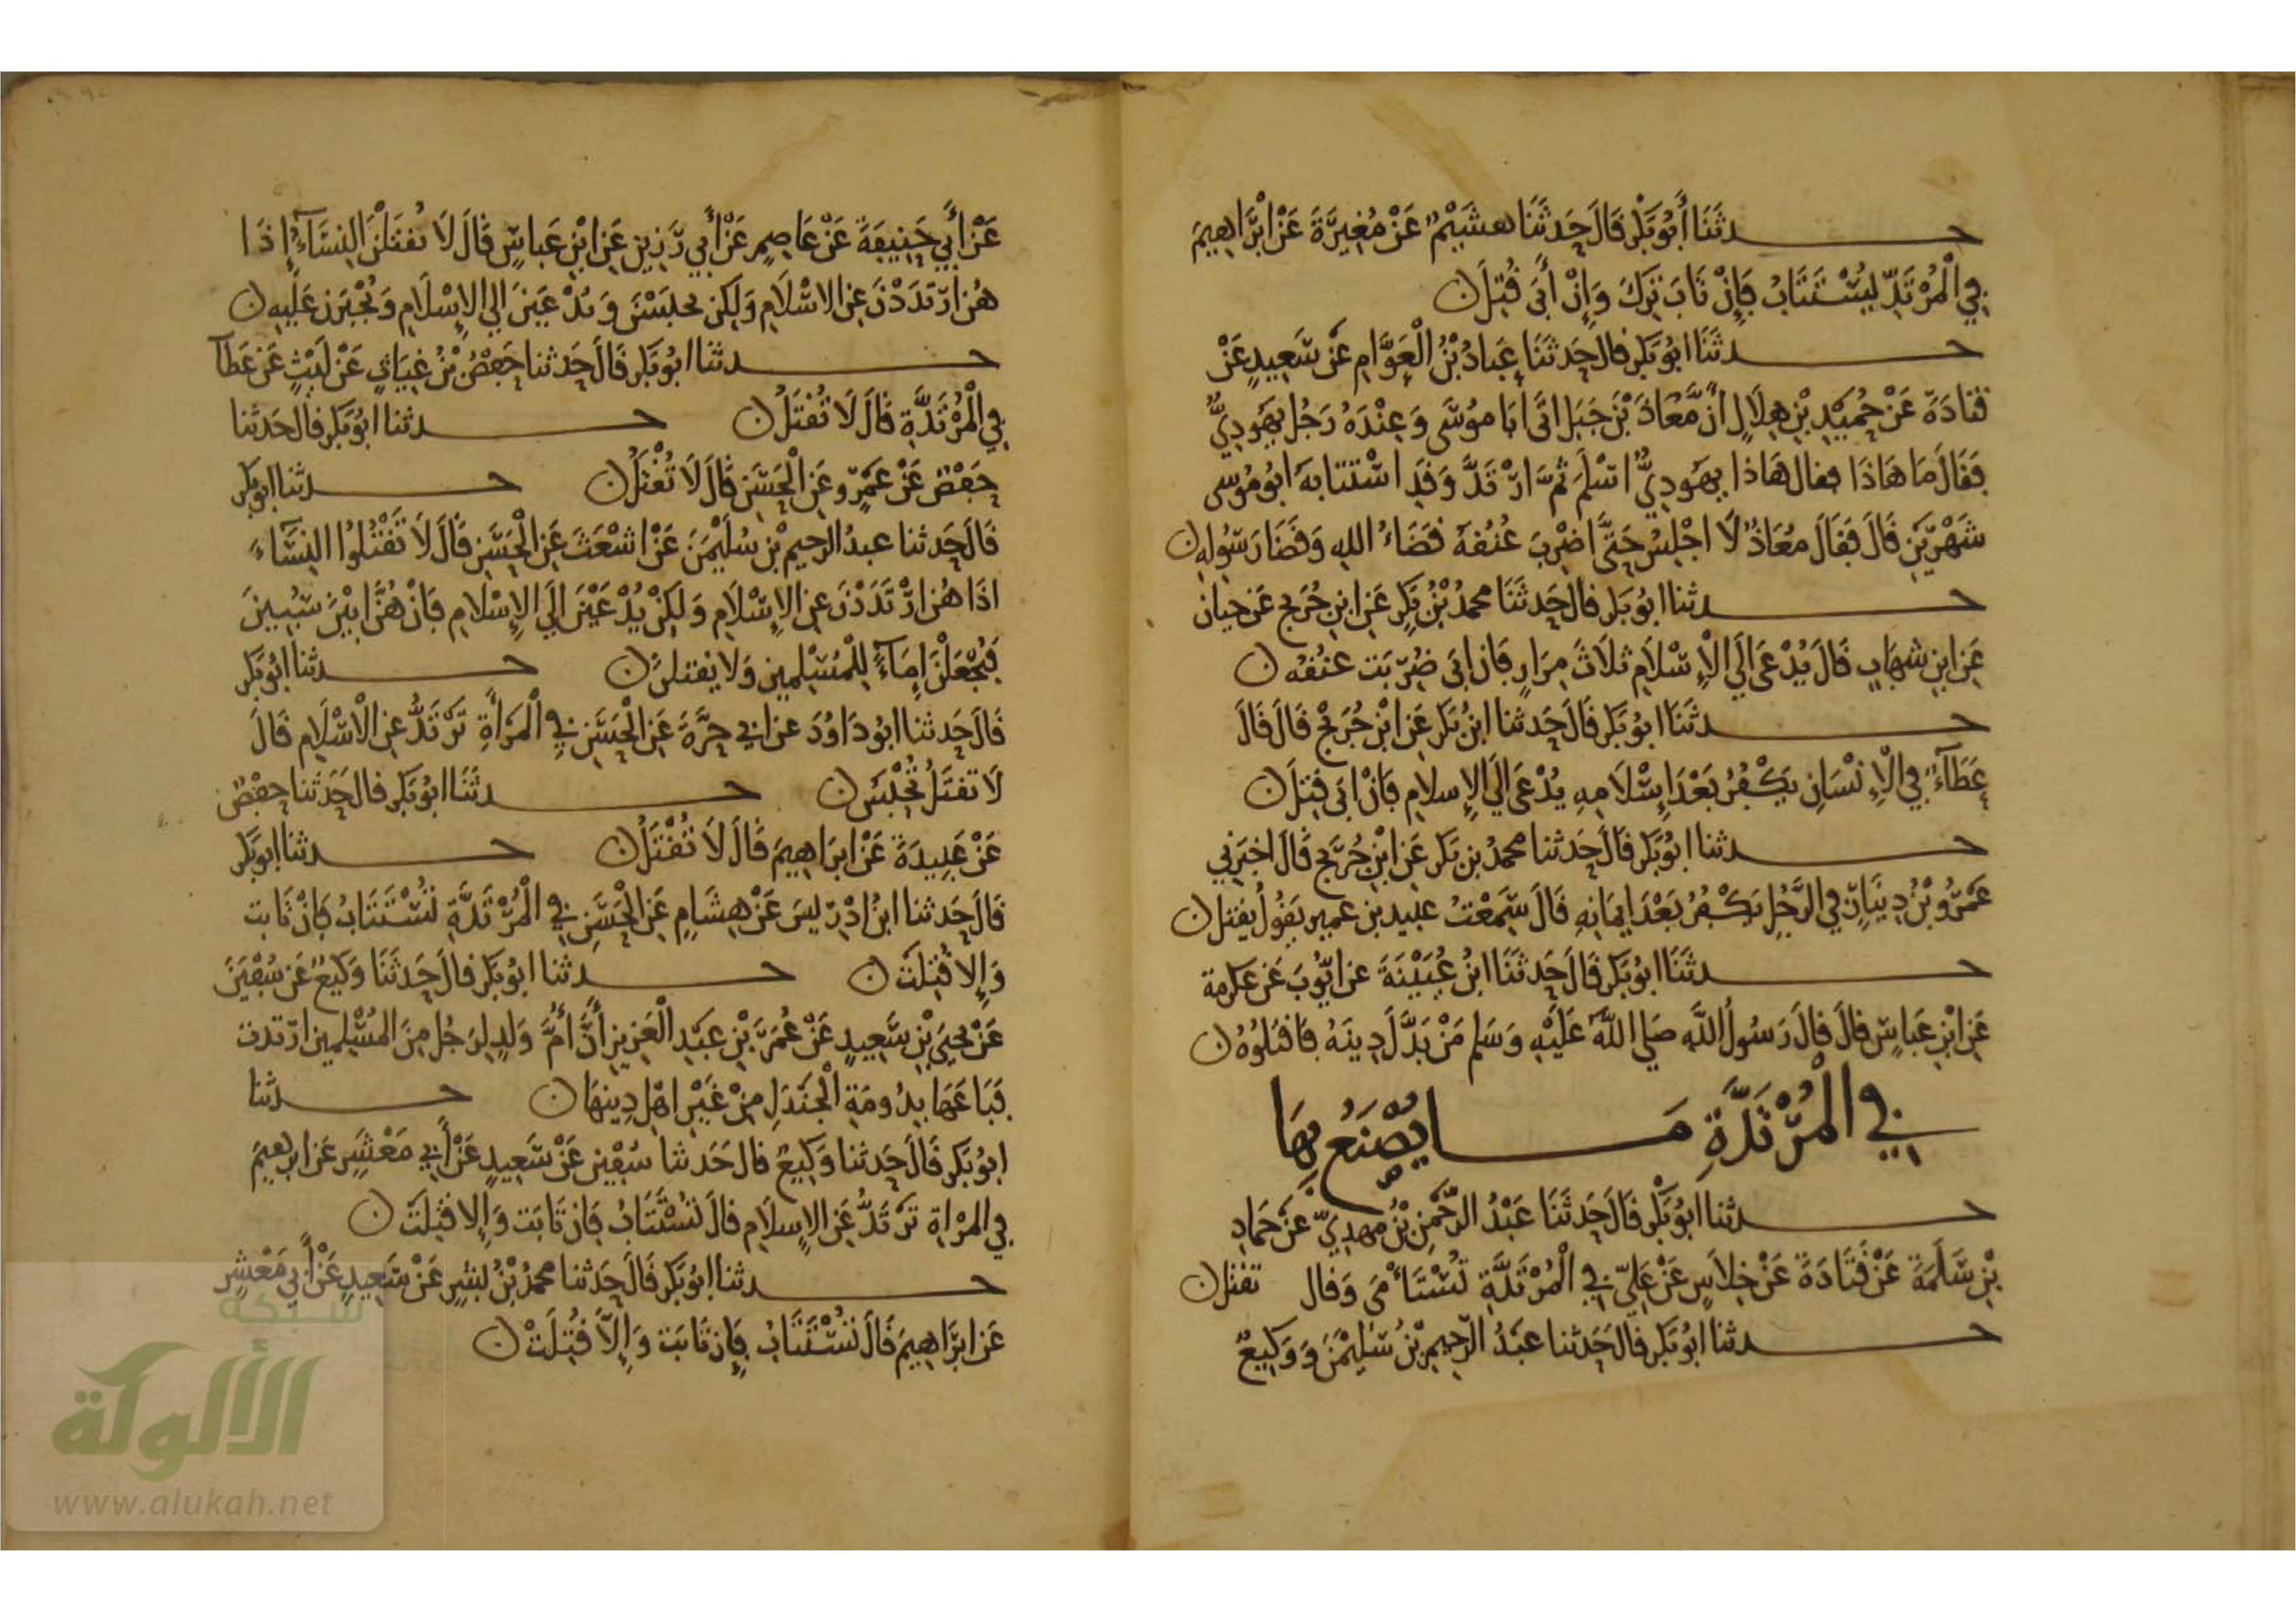 حدثنا أَبُو بَكْر قَالَ حَدثَنَا هشَيْمٌ عَنْ مُغِيرَةَ عَنْ ابْرَاهِيمَ
فِي الْمُرْتَدِّ يُسْتَتَابُ فَإِنْ تَابَ تُرِكَ وَإِنْ أَبَى قُتِلَ
حدثَنَا ابُو بَكر قال حَدثَنَا عَبادُ بْنُ الْعَوَّامِ عَن سَعِيدٍ عَنْ
قتَادَةَ عَنْ حُمَيْدِ بْنِ هِلَالٍ أنَّ مُعَاذَ بْنَ جَبَل اتَى ابَا مُوسَى وَعِنْدَهُ رَجُل يَهُودِيٌّ
فَقَالَ مَا هَاذَا فقال هَاذا يهَودِيٌّ اسْلَمَ ثُمَّ ارْتَدَّ وَقَدِ اسْتتَابَه ابُو مُوسى
شَهْرَيْنِ قَالَ فَقَالَ مُعَاذٌ لَا اجْلِسُ حَتَّى اضْرِبَ عُنُقهُ قضَاءُ اللهِ وَقضَا رَسُولِهِ
حدثنا ابُو بَكر قال حَدثَنَا محمدُ بْنُ بَكِر عَنِ ابنِ جُرَيج عَن حيان
عَنِ ابنِ شهَابٍ قَالَ يُدْعَى الَى الْإِسْلَام ثلَاثَ مِرَارٍ فَان ابَى ضُرِبَت عنُقهُ
حدثَنَا ابُو بَكر قَالَ حَدثنا ابنُ بَكر عَنِ ابْنِ جُرَيْجٍ قَالَ قَالَ
عَطَاءٌ فِي الْإِنْسَانِ يَكْفُرُ بَعْدَ إِسْلَامِهِ يُدْعَى الَى الإِسلام فَانْ ابَى قتِلَ
حدثنا ابُو بَكر قَالَ حَدثنا محمدُ بن بَكر عَنِ ابْنِ جُرَيج قَالَ اخبَرَنِي
عَمْرُو بْنُ دِينَارٍ فِي الرَّجُلِ يَكْفُرُ بَعْدَ ايمَانِهِ قَالَ سَمِعْتُ عبيد بن عمير يَقُولُ يقتل
حدثَنَا ابُو بَكر قَالَ حَدثَنَا ابنُ عُيَيْنَةَ عن ايُّوبَ عَن عكرمة
عَنِ ابْنِ عَبَاسٍ قَالَ قَالَ رَسُولُ اللَّهِ صَلى اللهُ عَلَيْهِ وَسَلم مَنْ بَدَّلَ دِينَهُ فَاقتلوُهُ
فِي الْمُرْتَدَّةِ مَا يُصْنَعُ بِهَا
حدثنا ابُو بَكْر قَالَ حَدثَنَا عَبْدُ الرَّحْمَنِ بْنُ مهدِيّ عَنْ حَمادِ
بْنِ سَلَمَةَ عَنْ قَتَادَةَ عَنْ خِلَاسٍ عَنْ عَلِيّ فِي الْمُرْتَدَّةِ تُسْتَأْمَى وَقال تقتل
حدثنا ابُو بَكر قال حَدثنا عَبْدُ الرَّحِيمِ بْنُ سُلَيْمَنَ وَوَكِيعٌ
عَنْ أَبِي حَنِيفَةَ عَنْ عَاصِمٍ عَنْ أَبِي رَزِينٍ عَنِ ابْنِ عَباسٍ قَالَ لَا تُقتَلْنَ النِسَآءُ إِذَا
هُنَ ارْتَدَدْنَ عَنِ الاسْلَامِ وَلَكِن يحْبَسْنَ وَيدْعَيْنَ الى الإِسْلَامِ وَيُجْبَرْنَ عَلَيهِ
حدثنا ابُو بَكر قَالَ حَدثنا حَفْصُ بْنُ غِيَاثٍ عَنْ لَيْثٍ عَن عَطآ
فِي الْمُرْتَدَّةِ قَالَ لَا تُقْتَلُ حدثنا ابُو بَكر قال حَدثنا
حَفْصٌ عَنْ عَمْرٍو عَنِ الْحَسَنِ قَالَ لَا تُقْتَلُ حدثنا ابو بَكر
قَالَ حَدثنا عبدُ الرحيم بْنِ سُلَيْمَنَ عَنْ اشْعَثَ عَنِ الْحَسَنِ قَالَ لَا تَقْتُلُوا النِسَآءَ
اذَا هُنَ ارْتَدَدْنَ عَنِ الإِسْلَامِ وَلَكِنْ يُدْعَيْنَ الَى الإِسْلَامِ فَانْ هُنَّ ابَيْنَ سُبِينَ
فَيُجْعَلْنَ إِمَاءً لِلْمُسْلِمينَ وَلا يقتلنَ حدثنا ابُو بَكر
قَالَ حَدثنا ابُو دَاوُدَ عن ابي حرَّةَ عَنِ الْحَسَنِ فِي الْمَرْأَةِ تَرْتَدُّ عَنِ الْاسْلَامِ قَالَ
لَا تقتَلُ تُحْبَسُ حدثَنَا ابُو بَكر قال حَدثنا حفصٌ
عَنْ عَبِيدَةَ عَنْ ابرَاهِيمَ قَالَ لَا تُقْتَلُ حدثنا ابو بَكر
قَالَ حَدثنا ابنُ ادْرِيسَ عَنْ هِشَامٍ عَنِ الْحَسَنِ فِي الْمُرْتَدَّةِ تُسْتَتَابُ فَانْ تَابت
وَإِلا قُتِلَتْ حدثنا ابُو بَكر قال حَدثَنَا وَكِيعٌ عَن سُفْيَنَ
عَنْ يَحيَى بْنِ سَعِيدٍ عَنْ عُمَرَ بْنِ عَبْدِ الْعَزِيزِ أَنَّ أُمَّ وَلَدٍ لِرَجُلٍ مِنَ المُسْلِمِينَ ارْتدت
فَبَاعَهَا بِدُومَةِ الْجَنْدَلِ مِنْ غَيْرِ اهْلِ دِينهَا حدثنا
ابُو بَكر قَالَ حَدثنا وَكِيعٌ قال حَدثنا سُفْين عَنْ سَعِيدٍ عَنْ أَبِي مَعْشَر عَن ابرهيمَ
فِي المرْاة تَرْتَدُّ عَنِ الإِسلَامِ قال تُسْتَتَابُ فَان تَابَت وَإِلا قُتِلَت
حدثنا ابُو بَكر قَالَ حَدثنا محمدُ بْنُ بِشرٍ عَنْ سَعِيدٍ عَنْ أَبِي مَعْشرٍ
عَن ابرَاهِيمَ قَالَ تُسْتَتَابُ فَإِن تَابَت وَإِلَّا قُتِلَتْ
شبكة
الألوكة
www.alukah.net